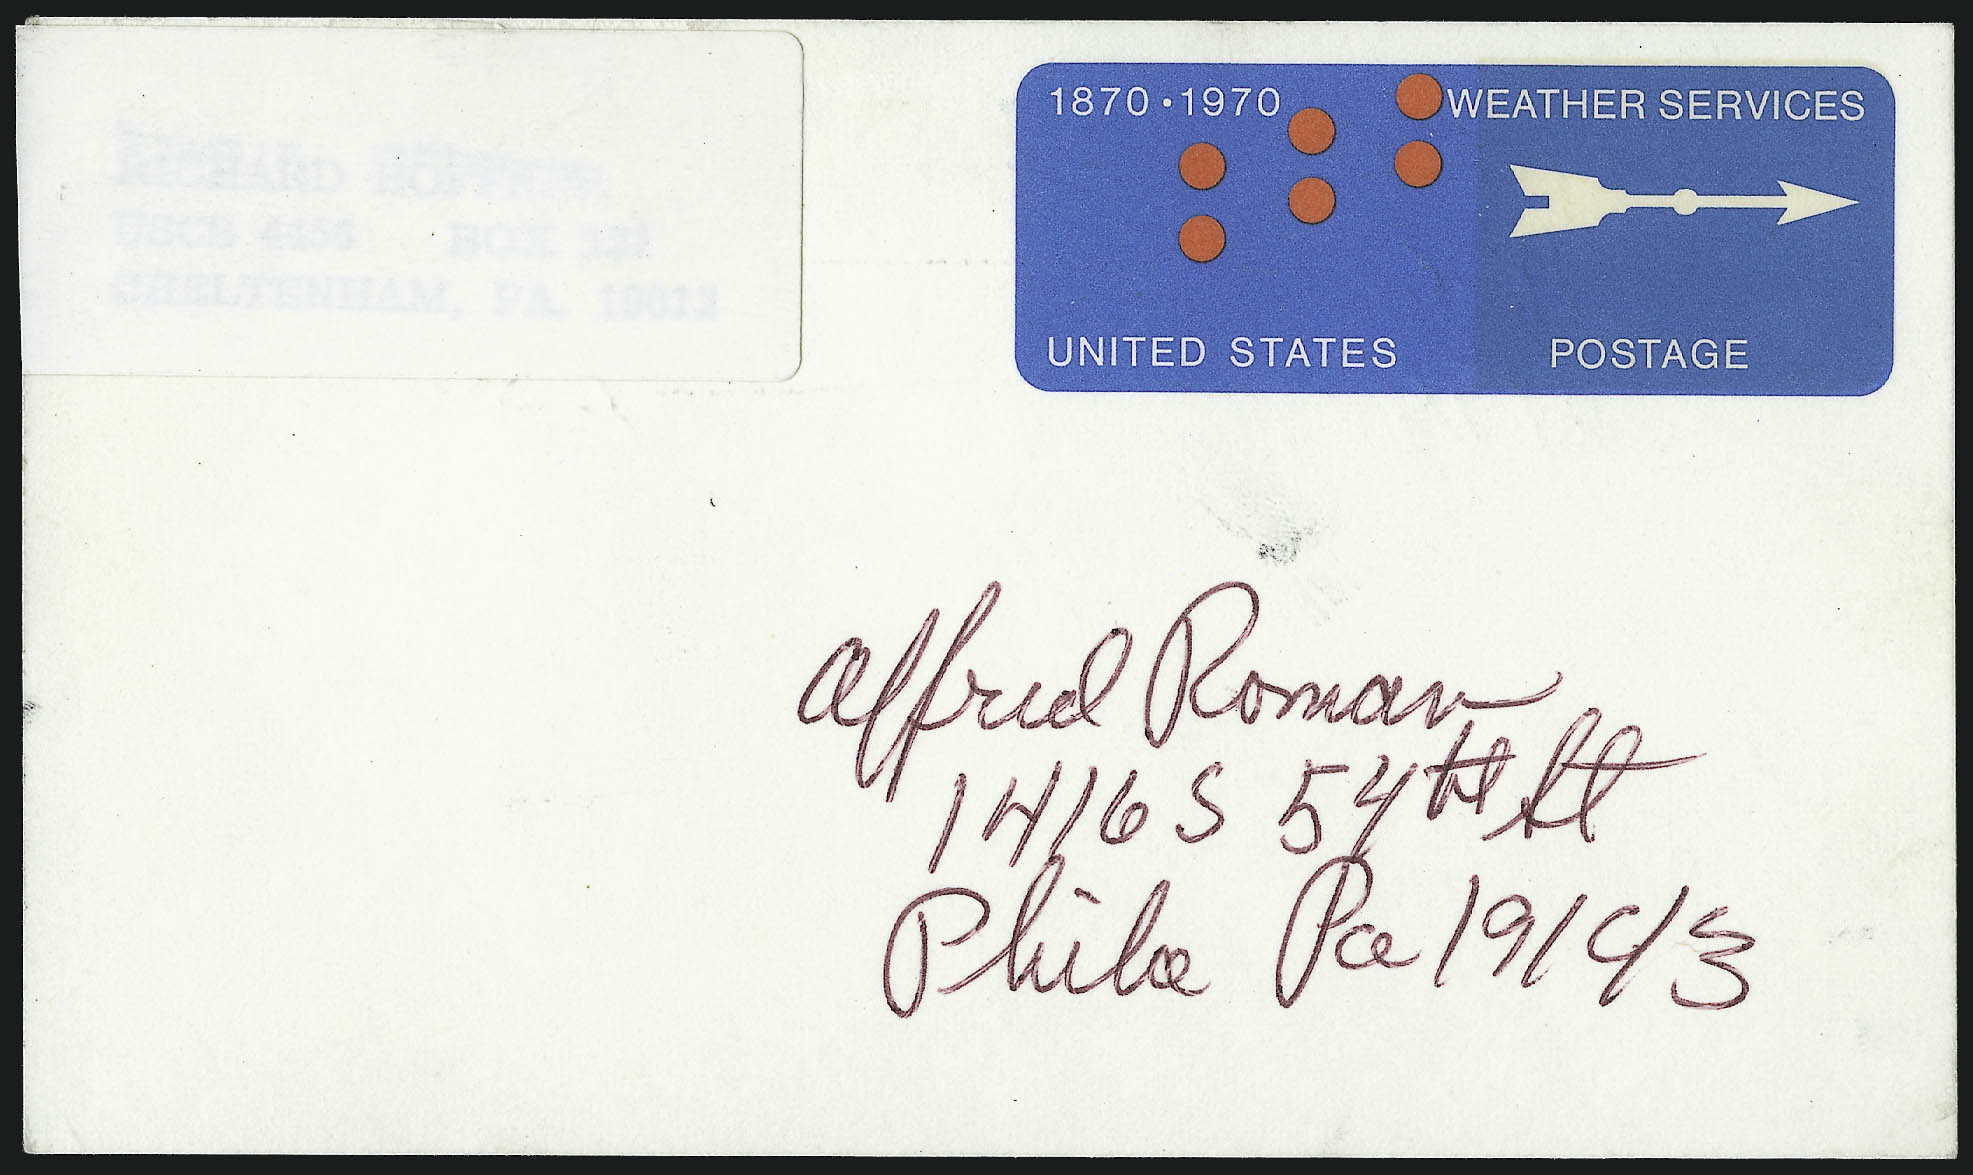 RICHARD
BOX
CHELTENHAM, PA. 19012
1870 • 1970 WEATHER SERVICES
UNITED STATES POSTAGE
Alfred Roman
1416 S 54TH St
Phila Pa 19143